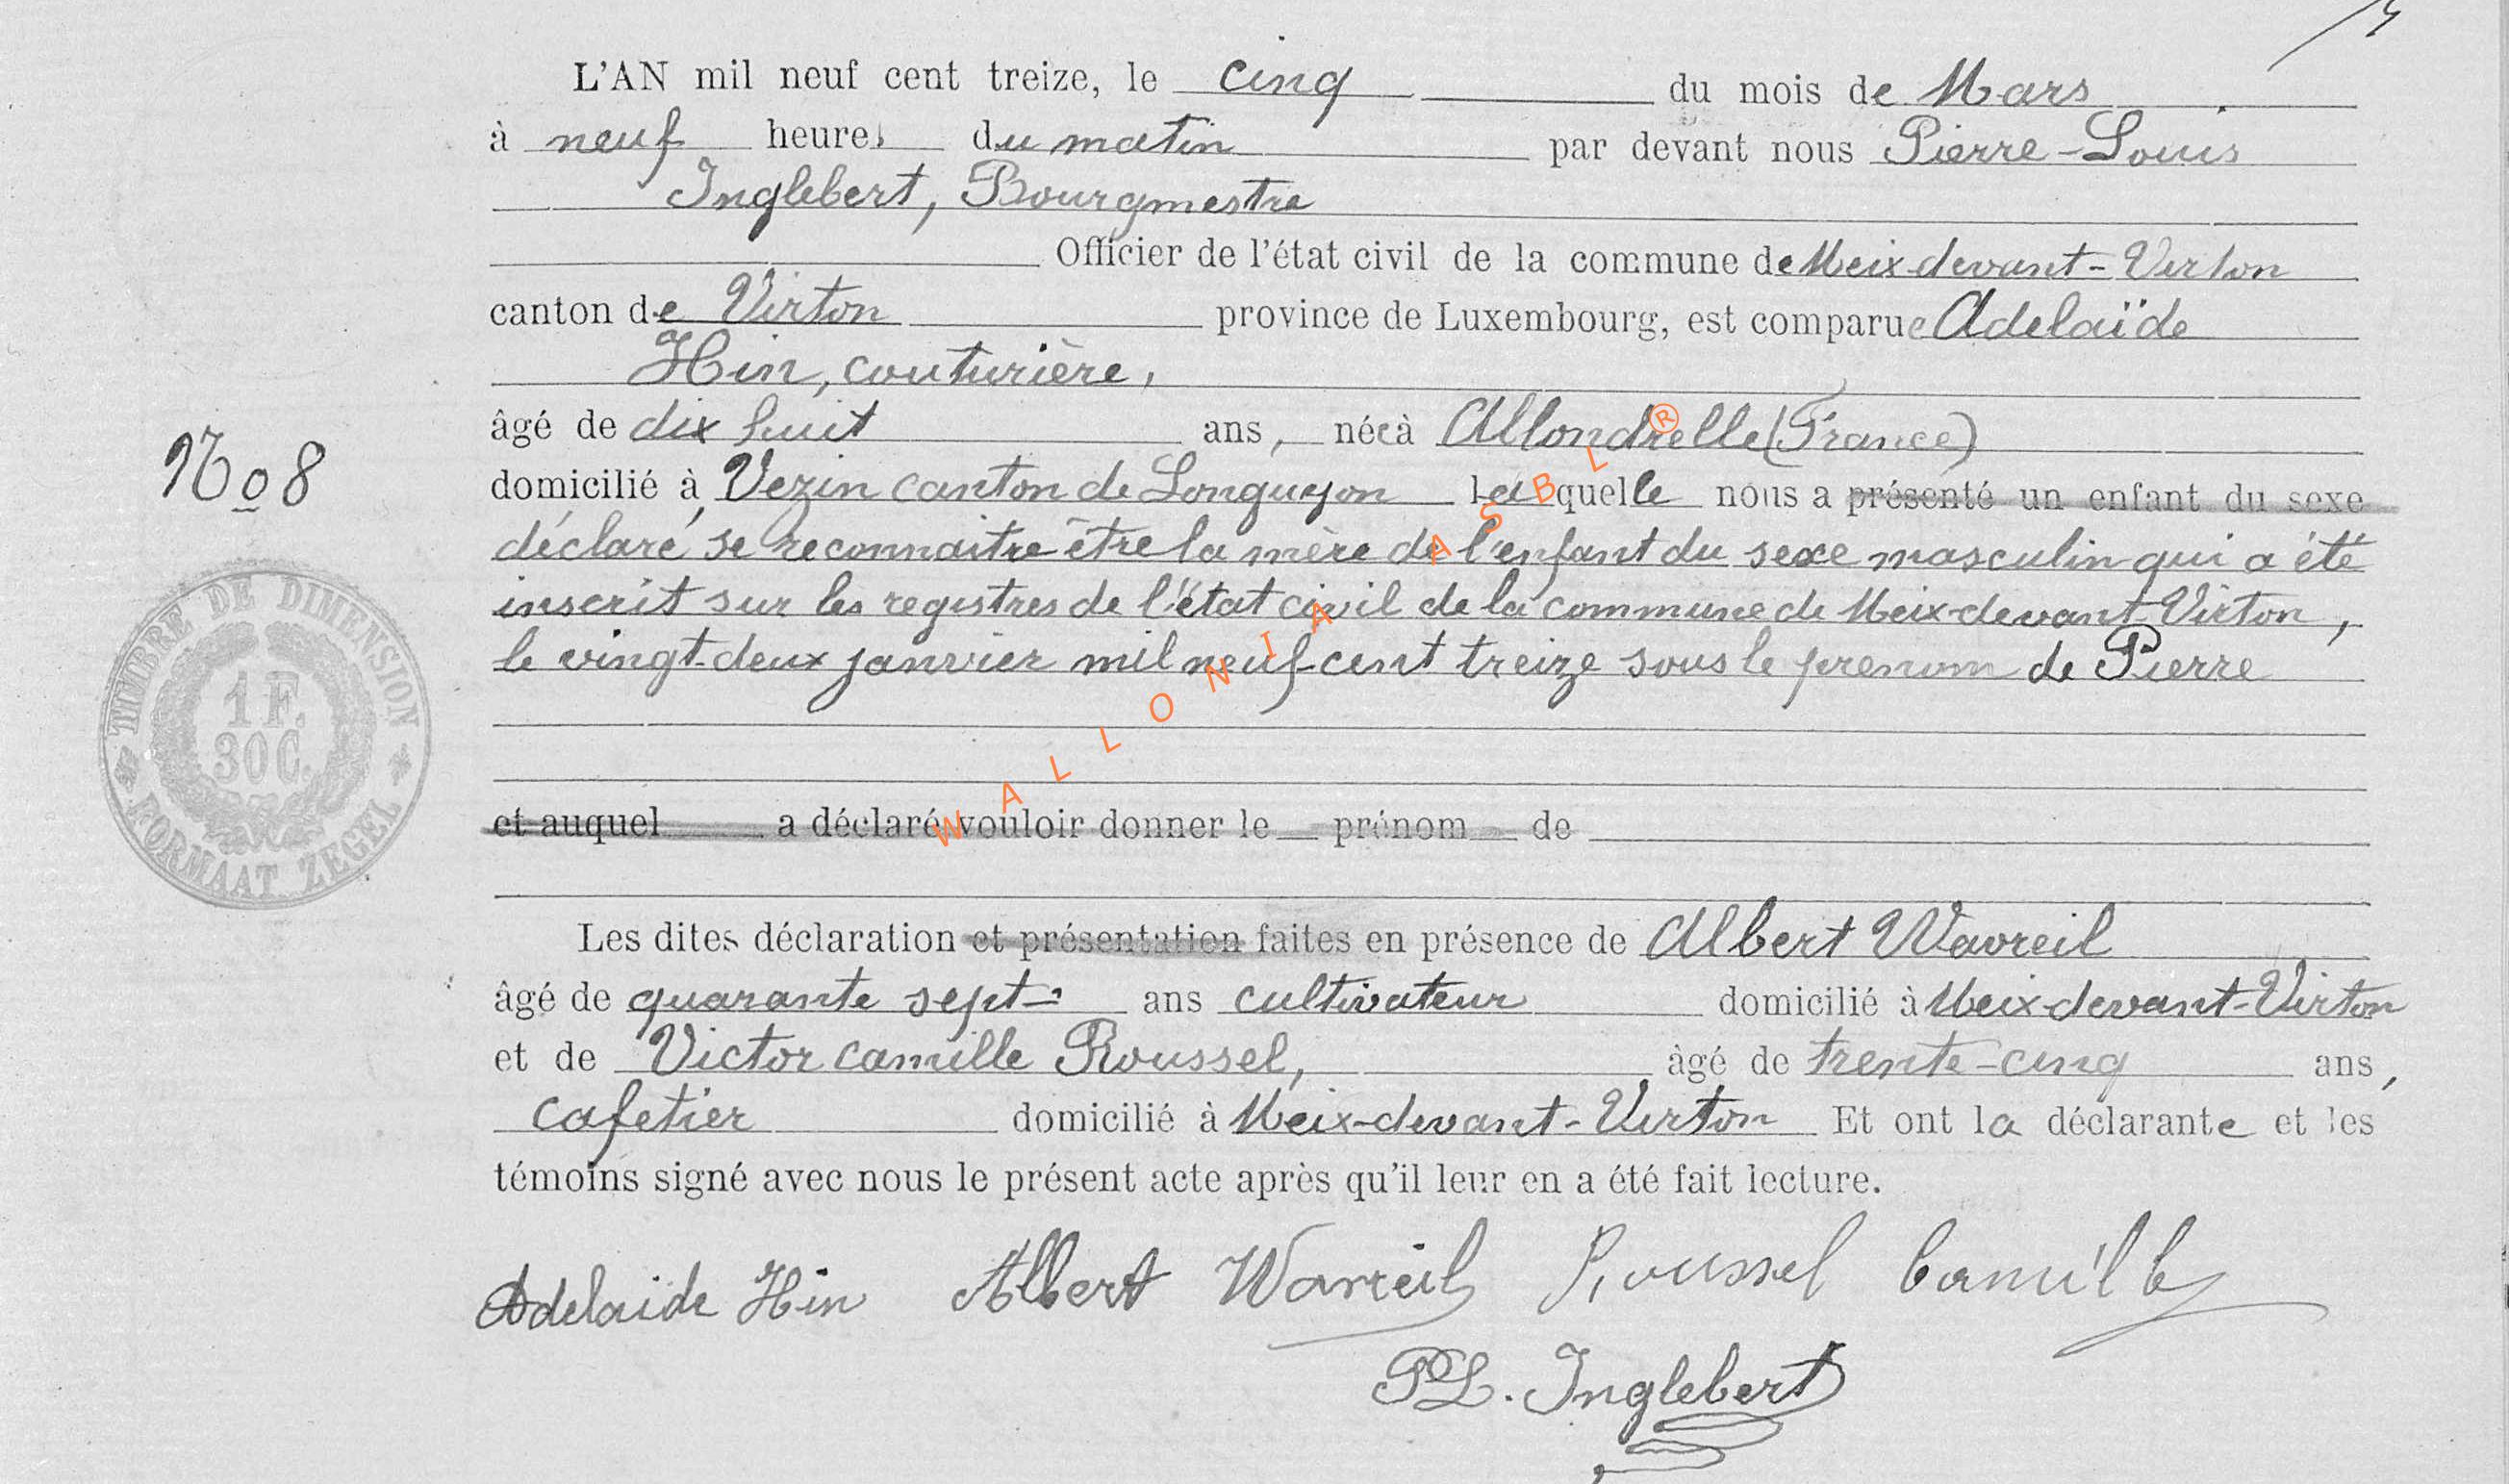 L'AN mil neuf cent treize, le cinq du mois de Mars
à neuf heures du matin par devant nous Pierre-Louis
Inglebert, Bourgmestre
Officier de l'état civil de la commune de Meix-devant-Virton
canton de Virton province de Luxembourg, est comparue Adelaïde
Hin, couturière,
âgé de dix huit ans, née à Allondrelle (France)
domicilié à Vezin canton de Longuyon laquelle nous a présenté un enfant du sexe
déclaré se reconnaitre être la mère de l'enfant du sexe masculin qui a été
inscrit sur les registres de l'état civil de la commune de Meix-devant-Virton,
le vingt-deux janvier mil neuf-cent treize sous le prenom de Pierre
et auquel a déclaré vouloir donner le prénom de
Les dites déclaration et présentation faites en présence de Albert Wavreil
âgé de quarante sept ans cultivateur domicilié à Meix-devant-Virton
et de Victor camille Roussel, âgé de trente-cinq ans,
cafetier domicilié à Meix-devant-Virton Et ont la déclarante et les
témoins signé avec nous le présent acte après qu'il leur en a été fait lecture.
Adelaïde Hin Albert Wavreil Roussel Camille
PL. Inglebert
No 8
TIMBRE DE DIMENSION
1 F.
30 C.
FORMAAT ZEGEL
WALLONIA ASBL ®